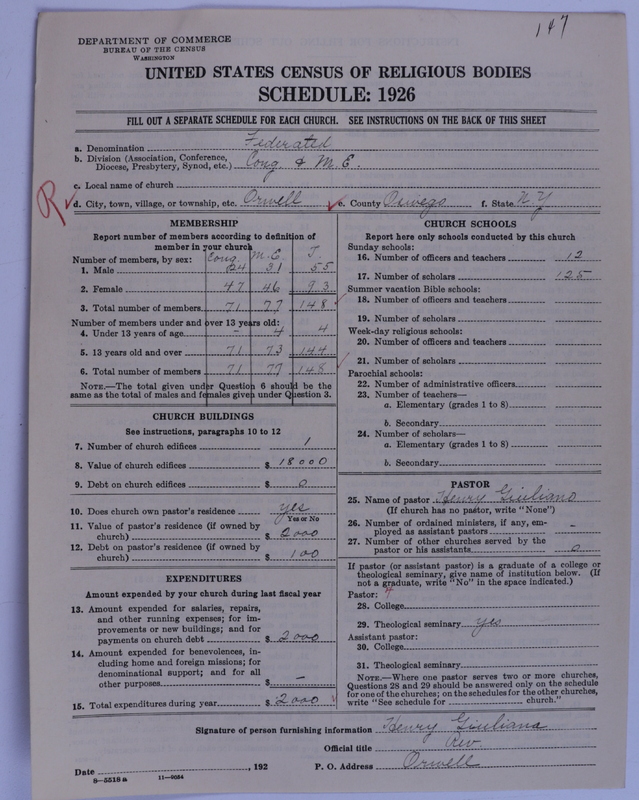 147
DEPARTMENT OF COMMERCE
BUREAU OF THE CENSUS
WASHINGTON
UNITED STATES CENSUS OF RELIGIOUS BODIES
SCHEDULE: 1926
FILL OUT A SEPARATE SCHEDULE FOR EACH CHURCH. SEE INSTRUCTIONS ON THE BACK OF THIS SHEET
a. Denomination Federated
b. Division (Association, Conference, Diocese, Presbytery, Synod, etc.) Cong. & M. E.
c. Local name of church
R d. City, town, village, or township, etc. Orwell e. County Oswego f. State N Y
MEMBERSHIP
Report number of members according to definition of
member in your church
Number of members, by sex: Cong. M. E. T.
1. Male 24 31 55
2. Female 47 46 93
3. Total number of members 71 77 148
Number of members under and over 13 years old:
4. Under 13 years of age - 4 4
5. 13 years old and over 71 73 144
6. Total number of members 71 77 148
NOTE.—The total given under Question 6 should be the
same as the total of males and females given under Question 3.
CHURCH BUILDINGS
See instructions, paragraphs 10 to 12
7. Number of church edifices 1
8. Value of church edifices $ 18000
9. Debt on church edifices $ 0
10. Does church own pastor's residence yes
Yes or No
11. Value of pastor's residence (if owned by
church) $ 2000
12. Debt on pastor's residence (if owned by
church) $ 100
EXPENDITURES
Amount expended by your church during last fiscal year
13. Amount expended for salaries, repairs,
and other running expenses; for im-
provements or new buildings; and for
payments on church debt $ 2000
14. Amount expended for benevolences, in-
cluding home and foreign missions; for
denominational support; and for all
other purposes $ -
15. Total expenditures during year $ 2000
CHURCH SCHOOLS
Report here only schools conducted by this church
Sunday schools:
16. Number of officers and teachers 12
17. Number of scholars 125
Summer vacation Bible schools:
18. Number of officers and teachers
19. Number of scholars
Week-day religious schools:
20. Number of officers and teachers
21. Number of scholars
Parochial schools:
22. Number of administrative officers
23. Number of teachers—
a. Elementary (grades 1 to 8)
b. Secondary
24. Number of scholars—
a. Elementary (grades 1 to 8)
b. Secondary
PASTOR
25. Name of pastor Henry Giuliano
(If church has no pastor, write "None")
26. Number of ordained ministers, if any, em-
ployed as assistant pastors -
27. Number of other churches served by the
pastor or his assistants 0
If pastor (or assistant pastor) is a graduate of a college or
theological seminary, give name of institution below. (If
not a graduate, write "No" in the space indicated.)
Pastor:
28. College
29. Theological seminary yes
Assistant pastor:
30. College
31. Theological seminary
NOTE.—Where one pastor serves two or more churches,
Questions 28 and 29 should be answered only on the schedule
for one of the churches; on the schedules for the other churches,
write "See schedule for church."
Signature of person furnishing information Henry Giuliano
Official title Rev.
Date , 192 P. O. Address Orwell
8-5518 a 11-9024